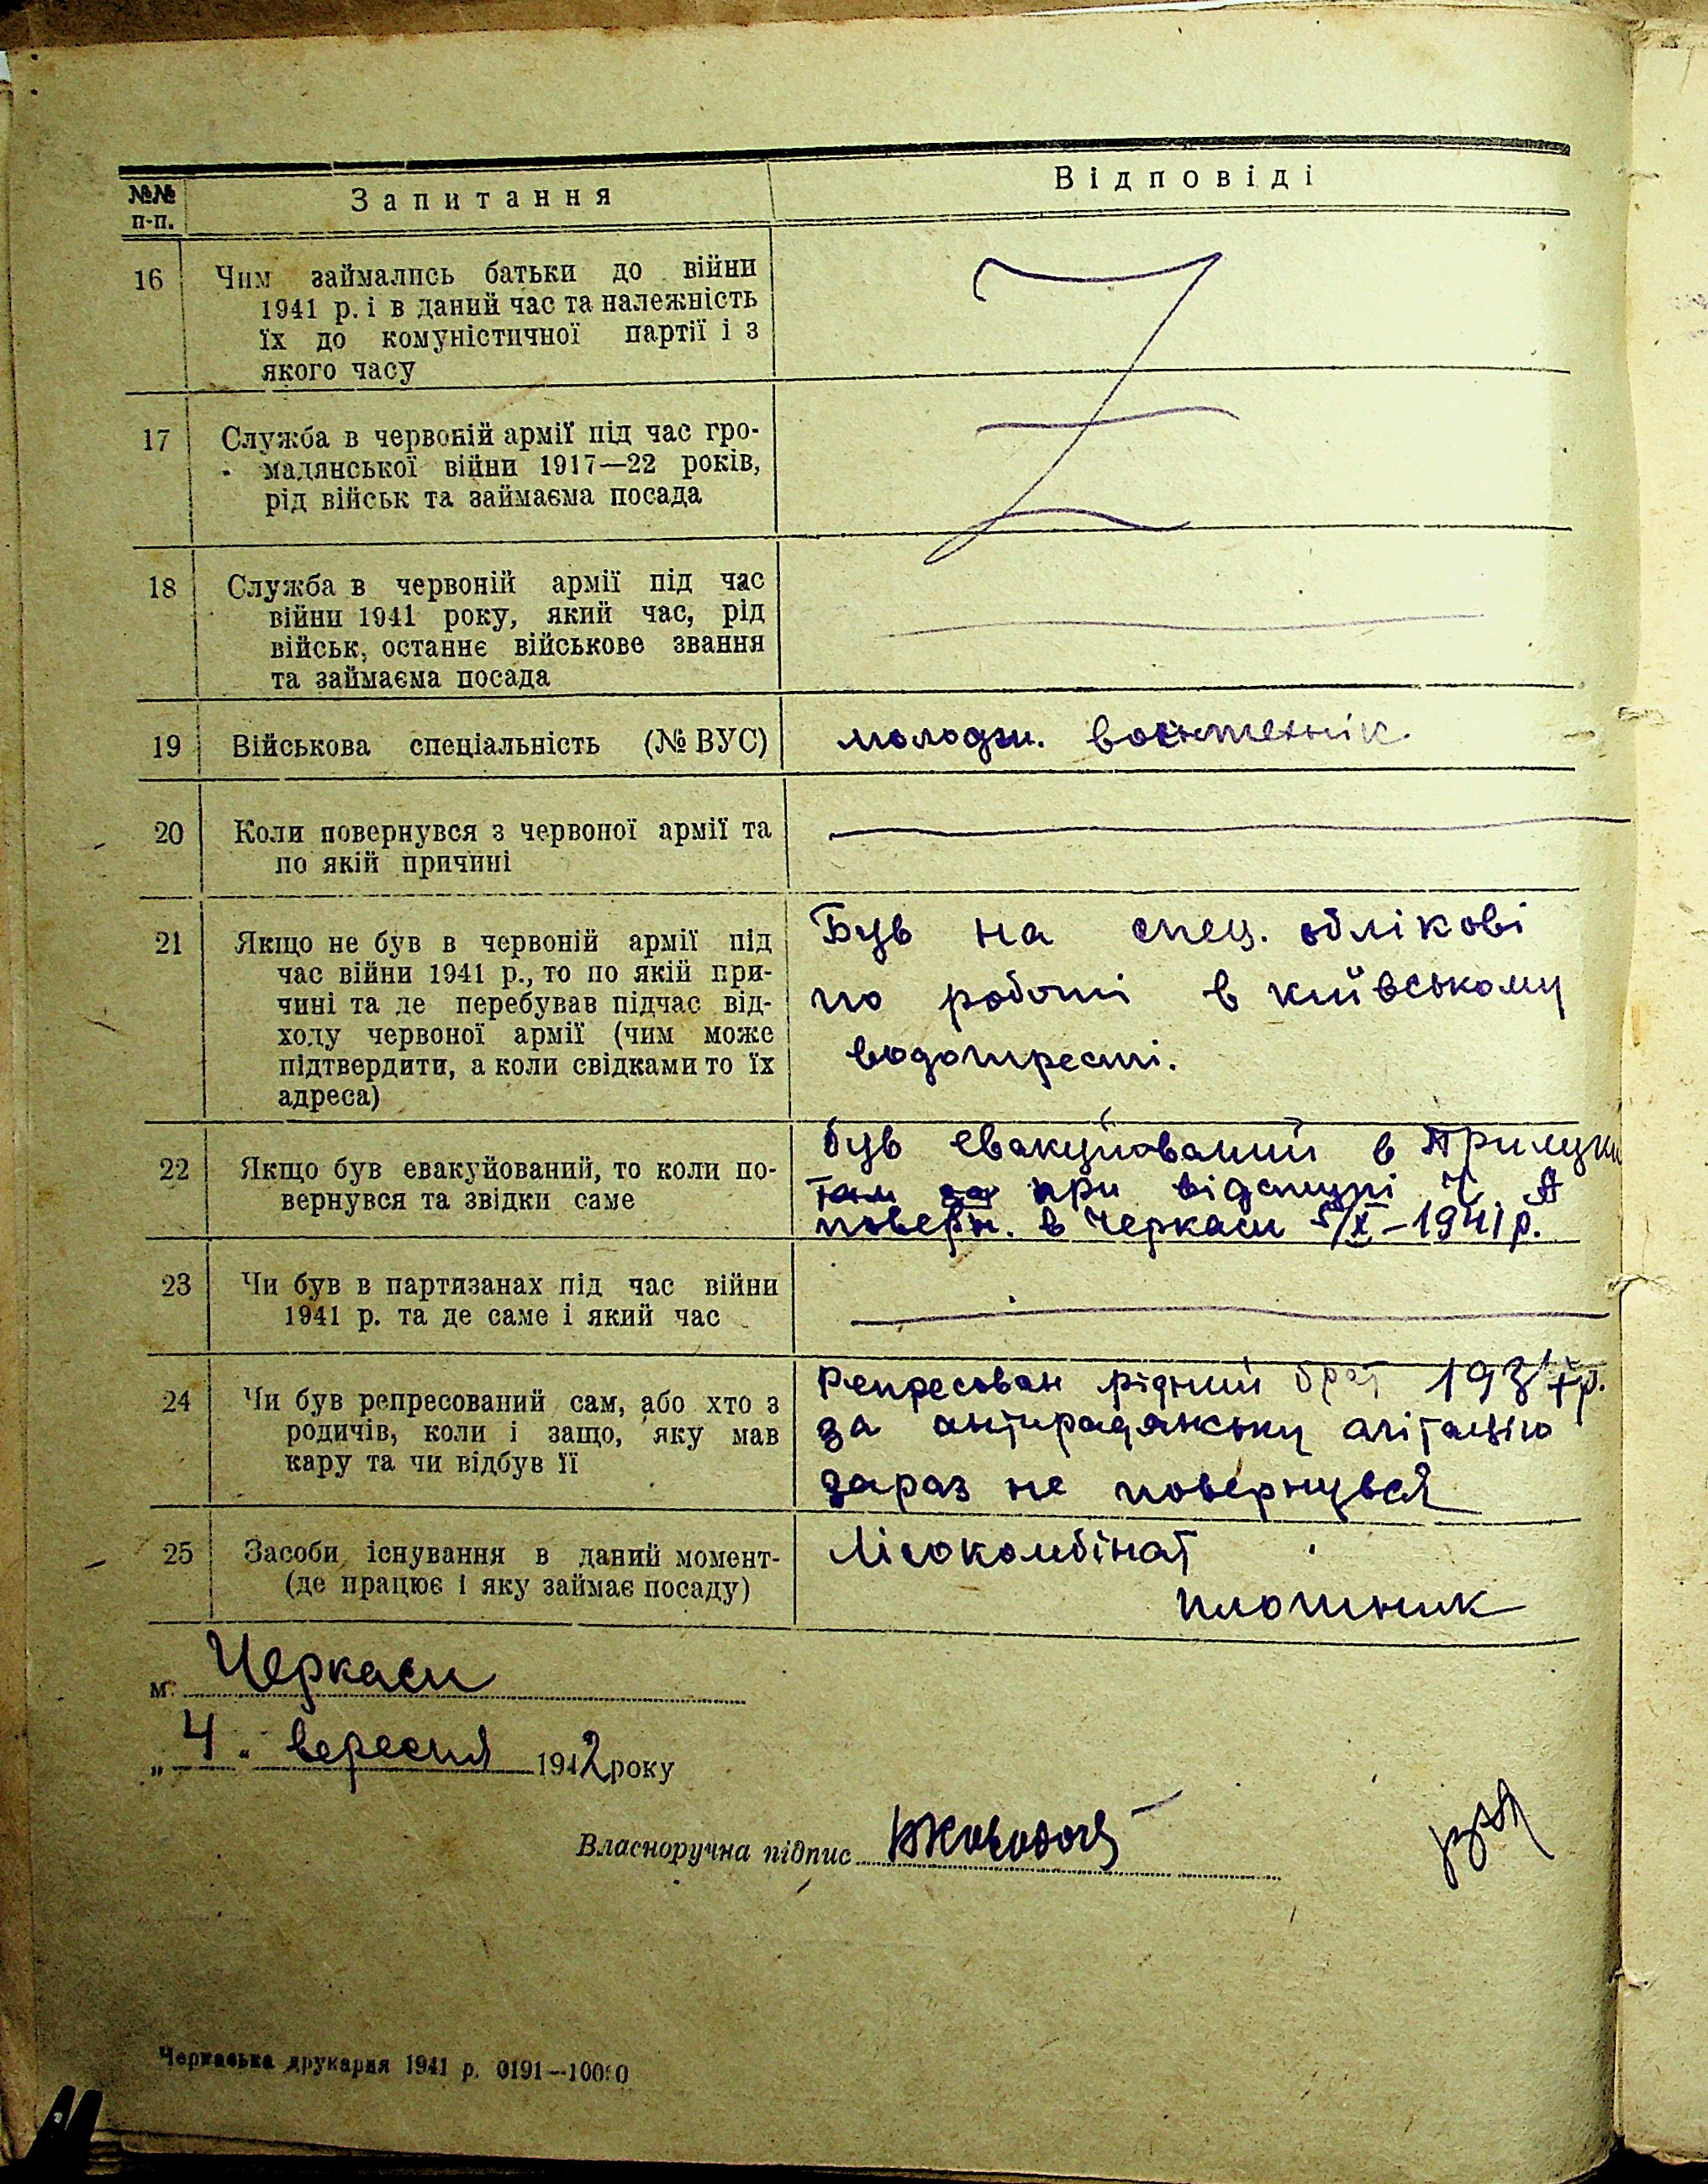 №№ п-п. Запитання Відповіді
16 Чим займались батьки до війни
1941 р. і в даний час та належність
їх до комуністичної партії і з
якого часу
17 Служба в червоній армії під час гро-
мадянської війни 1917—22 років,
рід військ та займаєма посада
18 Служба в червоній армії під час
війни 1941 року, який час, рід
військ, останнє військове звання
та займаєма посада
19 Військова спеціальність (№ ВУС)
молодш. воєнтехнік
20 Коли повернувся з червоної армії та
по якій причині
21 Якщо не був в червоній армії під
час війни 1941 р., то по якій при-
чині та де перебував підчас від-
ходу червоної армії (чим може
підтвердити, а коли свідками то їх
адреса)
Був на спец. облікові
по роботі в київському
водотресті.
22 Якщо був евакуйований, то коли по-
вернувся та звідки саме
був евакуйований в Прилуки
там при відступі Ч. А
поверн. в Черкаси 5/X-1941 р.
23 Чи був в партизанах під час війни
1941 р. та де саме і який час
24 Чи був репресований сам, або хто з
родичів, коли і защо, яку мав
кару та чи відбув її
Репресован рідний брат 1937 р.
за антирадянську агітацію
зараз не повернувся
25 Засоби існування в даний момент-
(де працює і яку займає посаду)
Лісокомбінат
плотник
м. Черкаси
„4" вересня 1942 року
Власноручна підпис
Черкаська друкарня 1941 р. 0191—10000